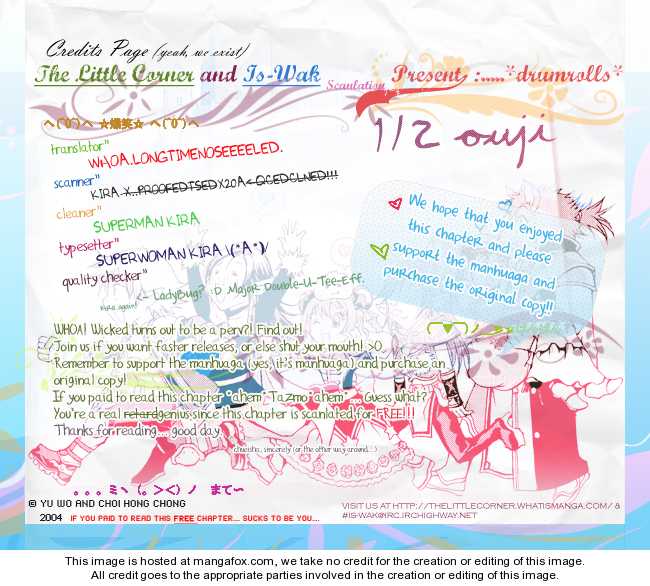 Credits Page (yeah, we exist)
The Little Corner and Is-Wak Scanlation Present, :.....*drumrolls*
1/2 ouji
☆爆笑☆
translator"
WHOA.LONGTIMENOSEEEELED.
scanner"
cleaner"
SUPERMAN KIRA
typesetter"
SUPERWOMAN KIRA \(*A*)/
quality checker"
kira again! <- LadyBug? :D Major Double-U-Tee-Eff.
We hope that you enjoyed
this chapter and please
support the manhuaga and
purchase the original copy!!
WHOA! Wicked turns out to be a perv?! Find out!
Join us if you want faster releases, or else shut your mouth! >:O
Remember to support the manhuaga (yes, it's manhuaga) and purchase an
original copy!
If you paid to read this chapter *ahem* Tazmo *ahem* ... Guess what?
You're a real retard genius since this chapter is scanlated for FREE!!!
Thanks for reading... good day.
sincerely (or the other way around...)
。。。ミヽ(。><)ノ まて～
© YU WO AND CHOI HONG CHONG
2004 IF YOU PAID TO READ THIS FREE CHAPTER... SUCKS TO BE YOU...
VISIT US AT HTTP://THELITTLECORNER.WHATISMANGA.COM/ &
#IS-WAK@IRC.IRCHIGHWAY.NET
This image is hosted at mangafox.com, we take no credit for the creation or editing of this image.
All credit goes to the appropriate parties involved in the creation or editing of this image.